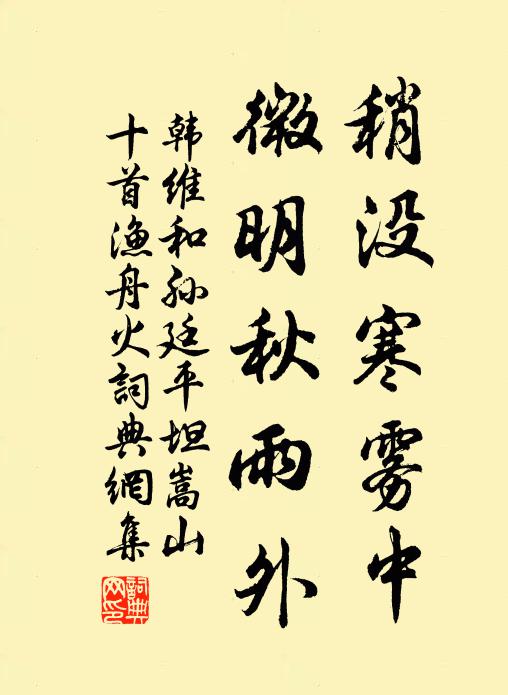 稍没寒雾中
微明秋雨外
韩维和孙廷平坦嵩山
十首渔舟火詞典網集
詞典网印